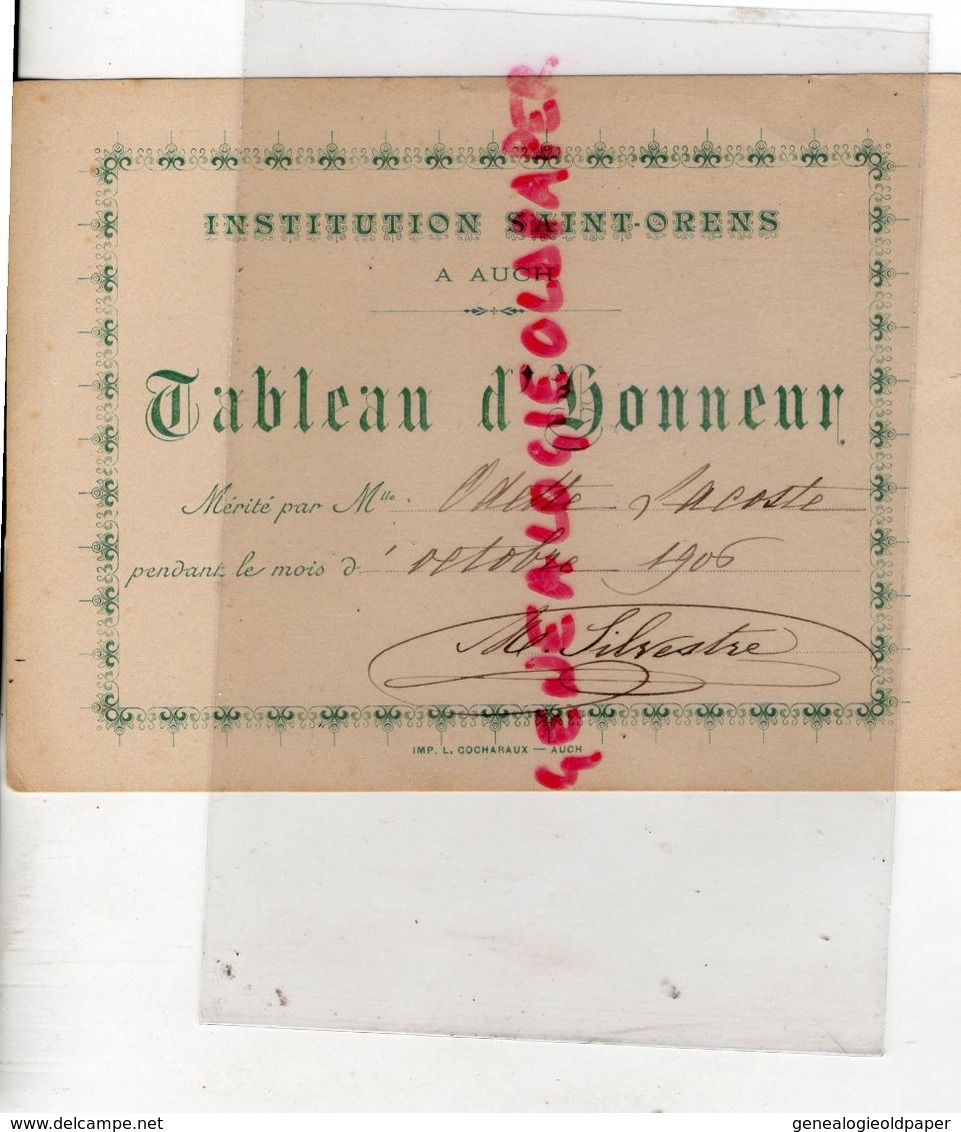 INSTITUTION SAINT-ORENS
A AUCH
Tableau d'Honneur
Mérité par Mlle Odette Lacoste
pendant le mois d' octobre 1906
M. Silvestre
IMP. L. COCHARAUX — AUCH
GENEALOGIEOLDPAPER
delcampe.net
genealogieoldpaper